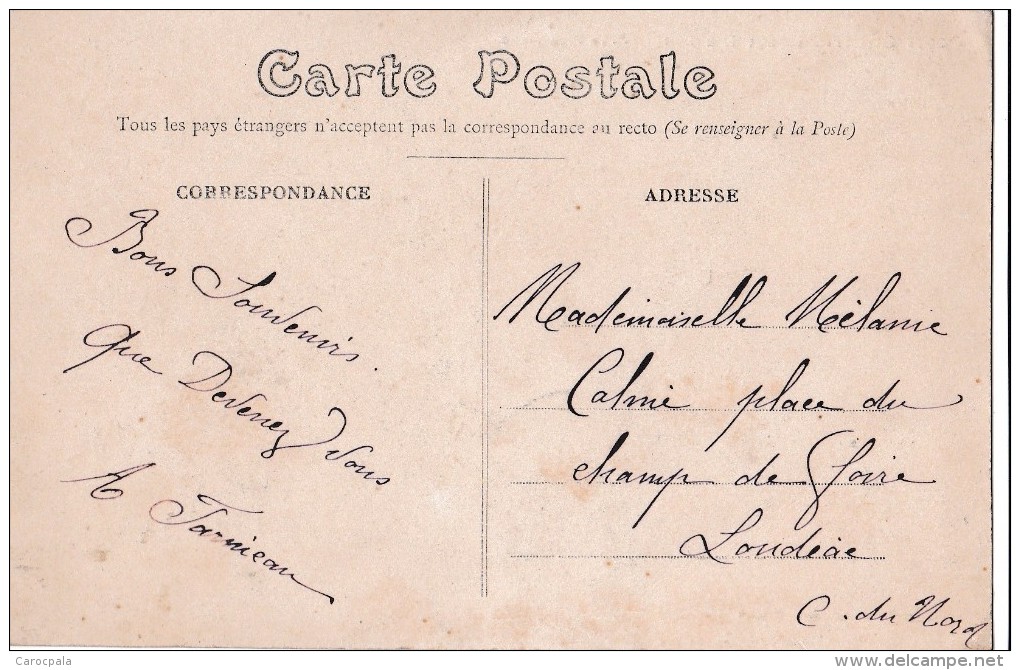 Carte Postale
Tous les pays étrangers n'acceptent pas la correspondance au recto (Se renseigner à la Poste)
CORRESPONDANCE
Bons Souvenirs.
Que Devenez Vous
A Tarnieau
ADRESSE
Mademoiselle Mélanie
Calmé place du
champ de foire
Loudéac
C. du Nord
Carocpala
delcampe.net